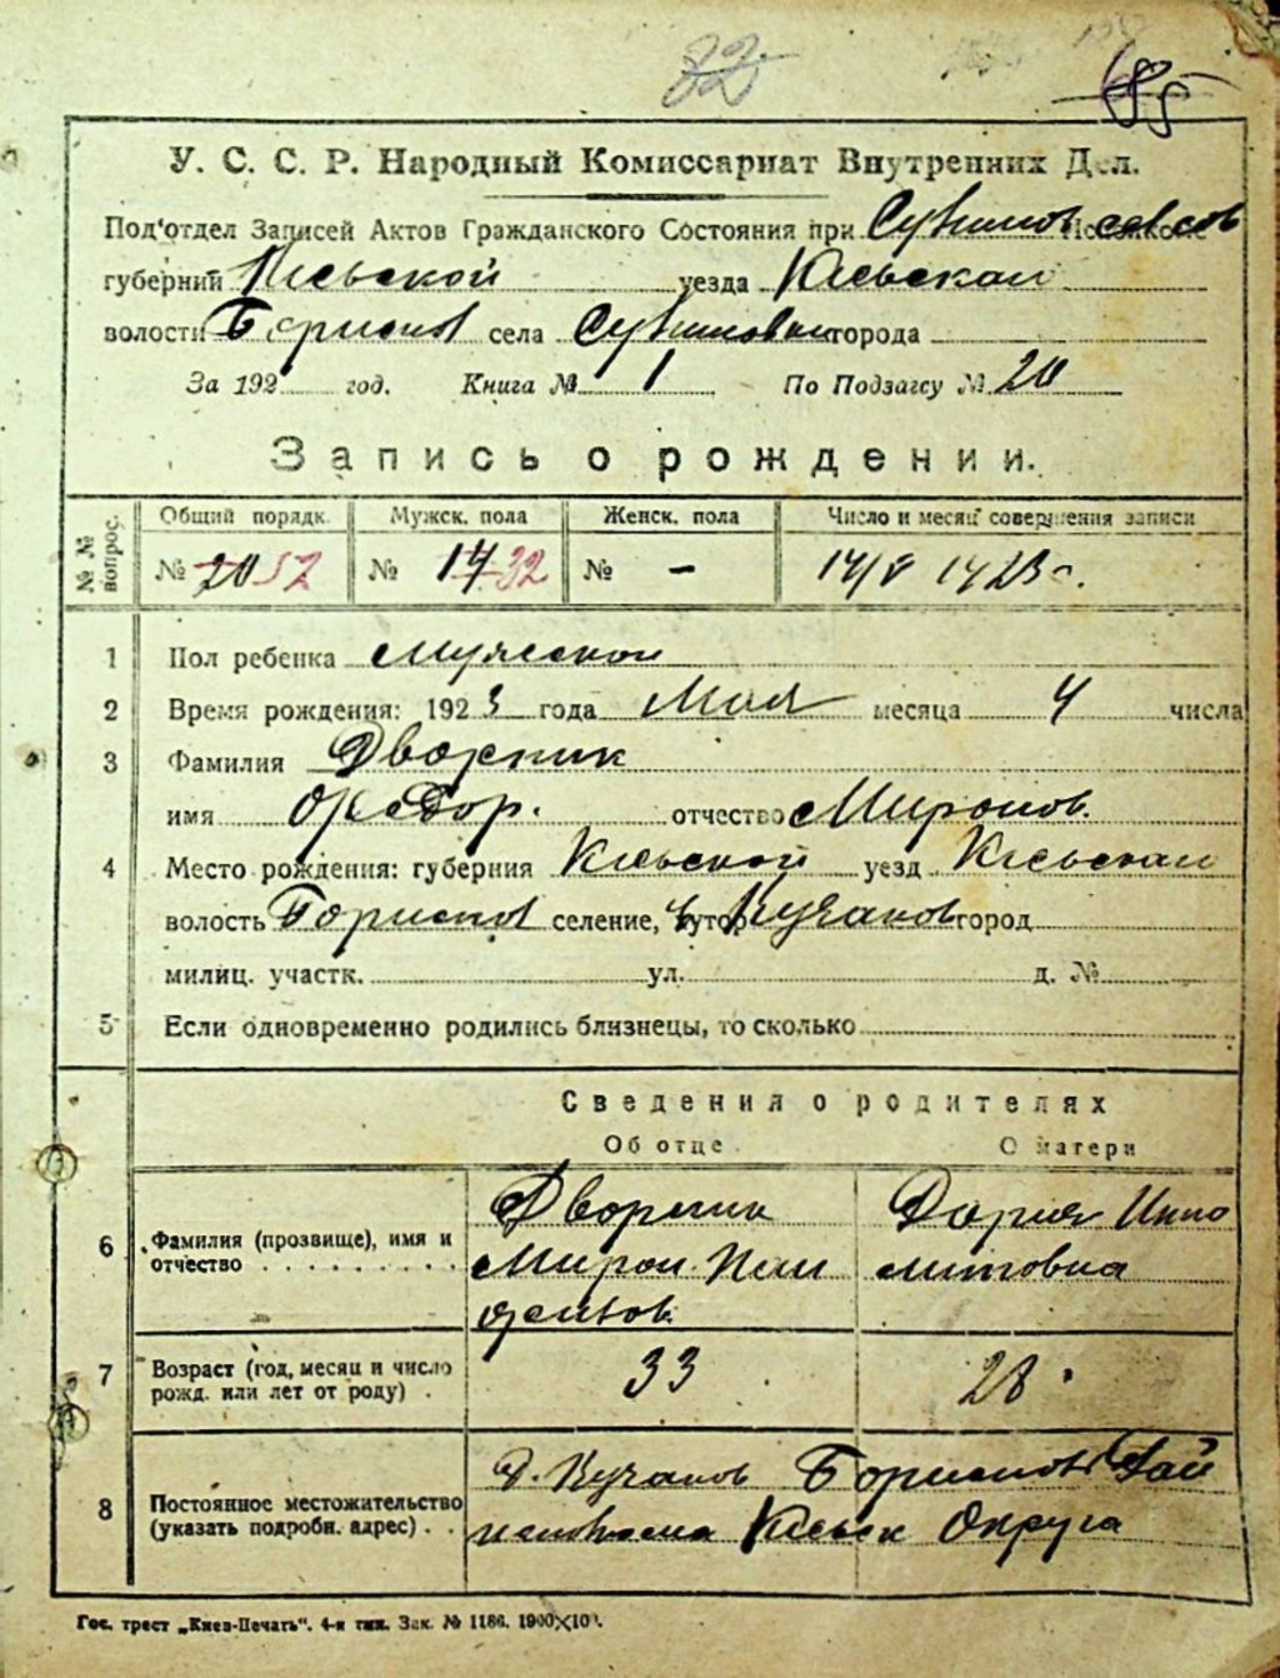 32
85
У. С. С. Р. Народный Комиссариат Внутренних Дел.
Под'отдел Записей Актов Гражданского Состояния при
губернии Киевской уезда Киевскаи
волости Борисп села города
За 192 год. Книга № 1 По Подзагсу № 20
Запись о рождении.
№№ вопрос. Общий порядк. Мужск. пола Женск. пола Число и месяц совершения записи
№ 20 52 № 17 32 № - 14/V 1923 г.
1 Пол ребенка мужской
2 Время рождения: 1923 года Мая месяца 4 числа
3 Фамилия Дворник
имя Федор. отчество Миронов.
4 Место рождения: губерния Киевской уезд Киевскаи
волость Борисп селение, хутор Кучаков город
милиц. участк. ул. д. №
5 Если одновременно родились близнецы, то сколько
Сведения о родителях
Об отце О матери
6 Фамилия (прозвище), имя и отчество Дворник Дария Иппо
Мирон литовна
7 Возраст (год, месяц и число рожд. или лет от роду) 33 28
8 Постоянное местожительство (указать подробн. адрес) Д. Кучаков Рай
Киевск Округа
Гос. трест „Киев-Печать“. 4-я тип. Зак. № 1186. 1900×100.